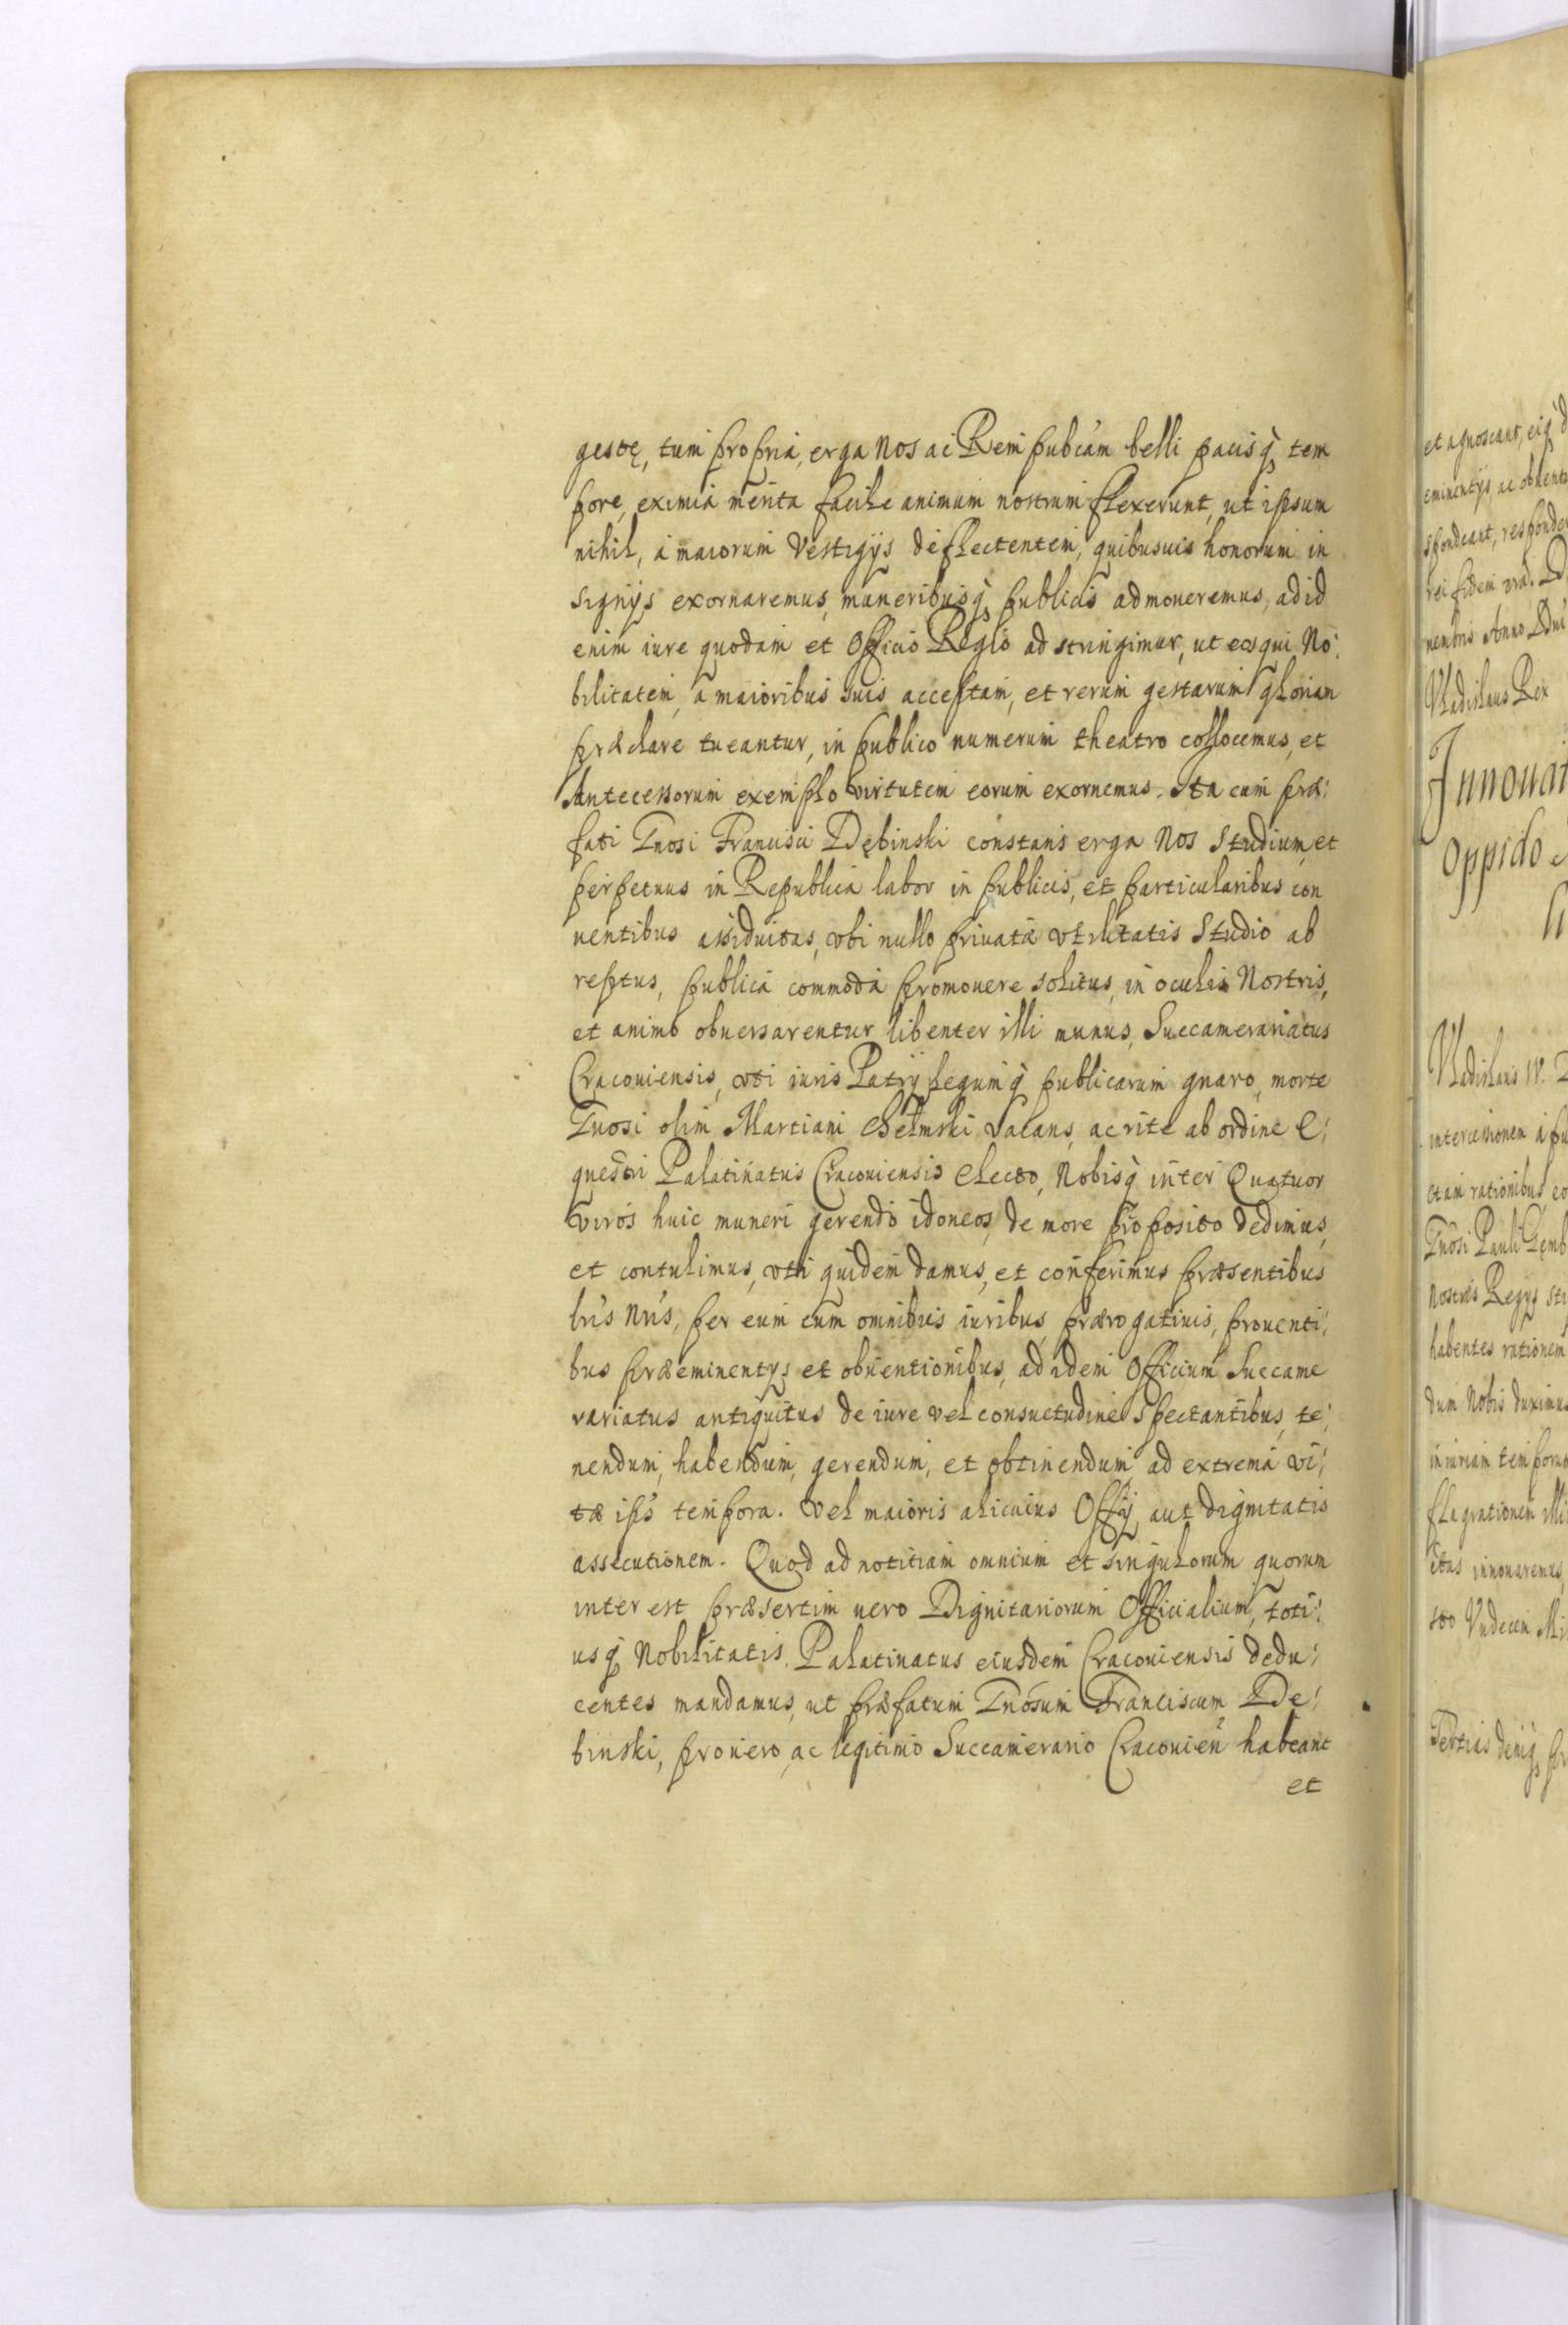 gestę, tum propria, erga Nos ac Rem pubcam belli pacisq, tem
pore, eximia merita facile animum nostrum flexerunt, ut ipsum
nihil, a maiorum Vestigijs deflectentem, quibusuis honorum in
signijs exornaremus, muneribusq, publicis admoueremus, ad id
enim iure quodam et Officio Regio adstringimur, ut eos qui No:
bilitatem, a maioribus suis acceptam, et rerum gestarum gloriam
præclare tueantur, in publico numerum theatro collocemus, et
Antecessorum exemplo virtutem eorum exornemus. Ita cum præ:
fati Gnosi Francisci Dębinski constans erga Nos Studium, et
perpetuus in Republica labor in publicis, et particularibus con
uentibus assiduitas, vbi nullo priuatæ vtilitatis Studio ab
reptus, publica commoda promouere solitus, in oculis Nostris,
et animo obuersarentur libenter illi munus, Succamerariatus
Cracouiensis, vti iuris Patrij legumq, publicarum gnaro, morte
Gnosi olim Martiani Chełmski vacans, ac rite ab ordine E:
questri Palatinatus Cracouiensis electo, Nobisq, inter Quatuor
viros huic muneri gerendo idoneos, de more proposito dedimus,
et contulimus, vti quidem damus, et conferimus præsentibus
lris Nris, per eum cum omnibus iuribus, prærogatiuis, prouenti:
bus præeminentys et obuentionibus, ad idem Officium Succame
rariatus antiquitus de iure vel consuetudine spectantibus, te:
nendum, habendum, gerendum, et obtinendum, ad extrema vi:
tæ ips tempora. Vel maioris alicuius Offij, aut dignitatis
assecutionem. Quod ad notitiam omnium et singulorum quorum
interest præsertim uero Dignitariorum Officialium, toti:
usq, Nobilitatis, Palatinatus eiusdem Cracouiensis dedu:
centes mandamus, ut præfatum Gnosum Franciscum De:
binski, pro uero, ac legitimo Succamerario Cracouien habeant
et
et agnoscant, eiq
eminentys, ac obuent
spondeant, responde
rei fidem
nembris Anno Dni
Vladislaus Rex
Innouat
Oppido
Vladislaus IV.
intercessionem a
ctam rationibus, eo
Gnosi Pauli
Nostris Regys
habentes rationem
dum Nobis duximus
iniuriam temporum
flagrationem illi
innouaremus
Vndecim
Tertias deniq,